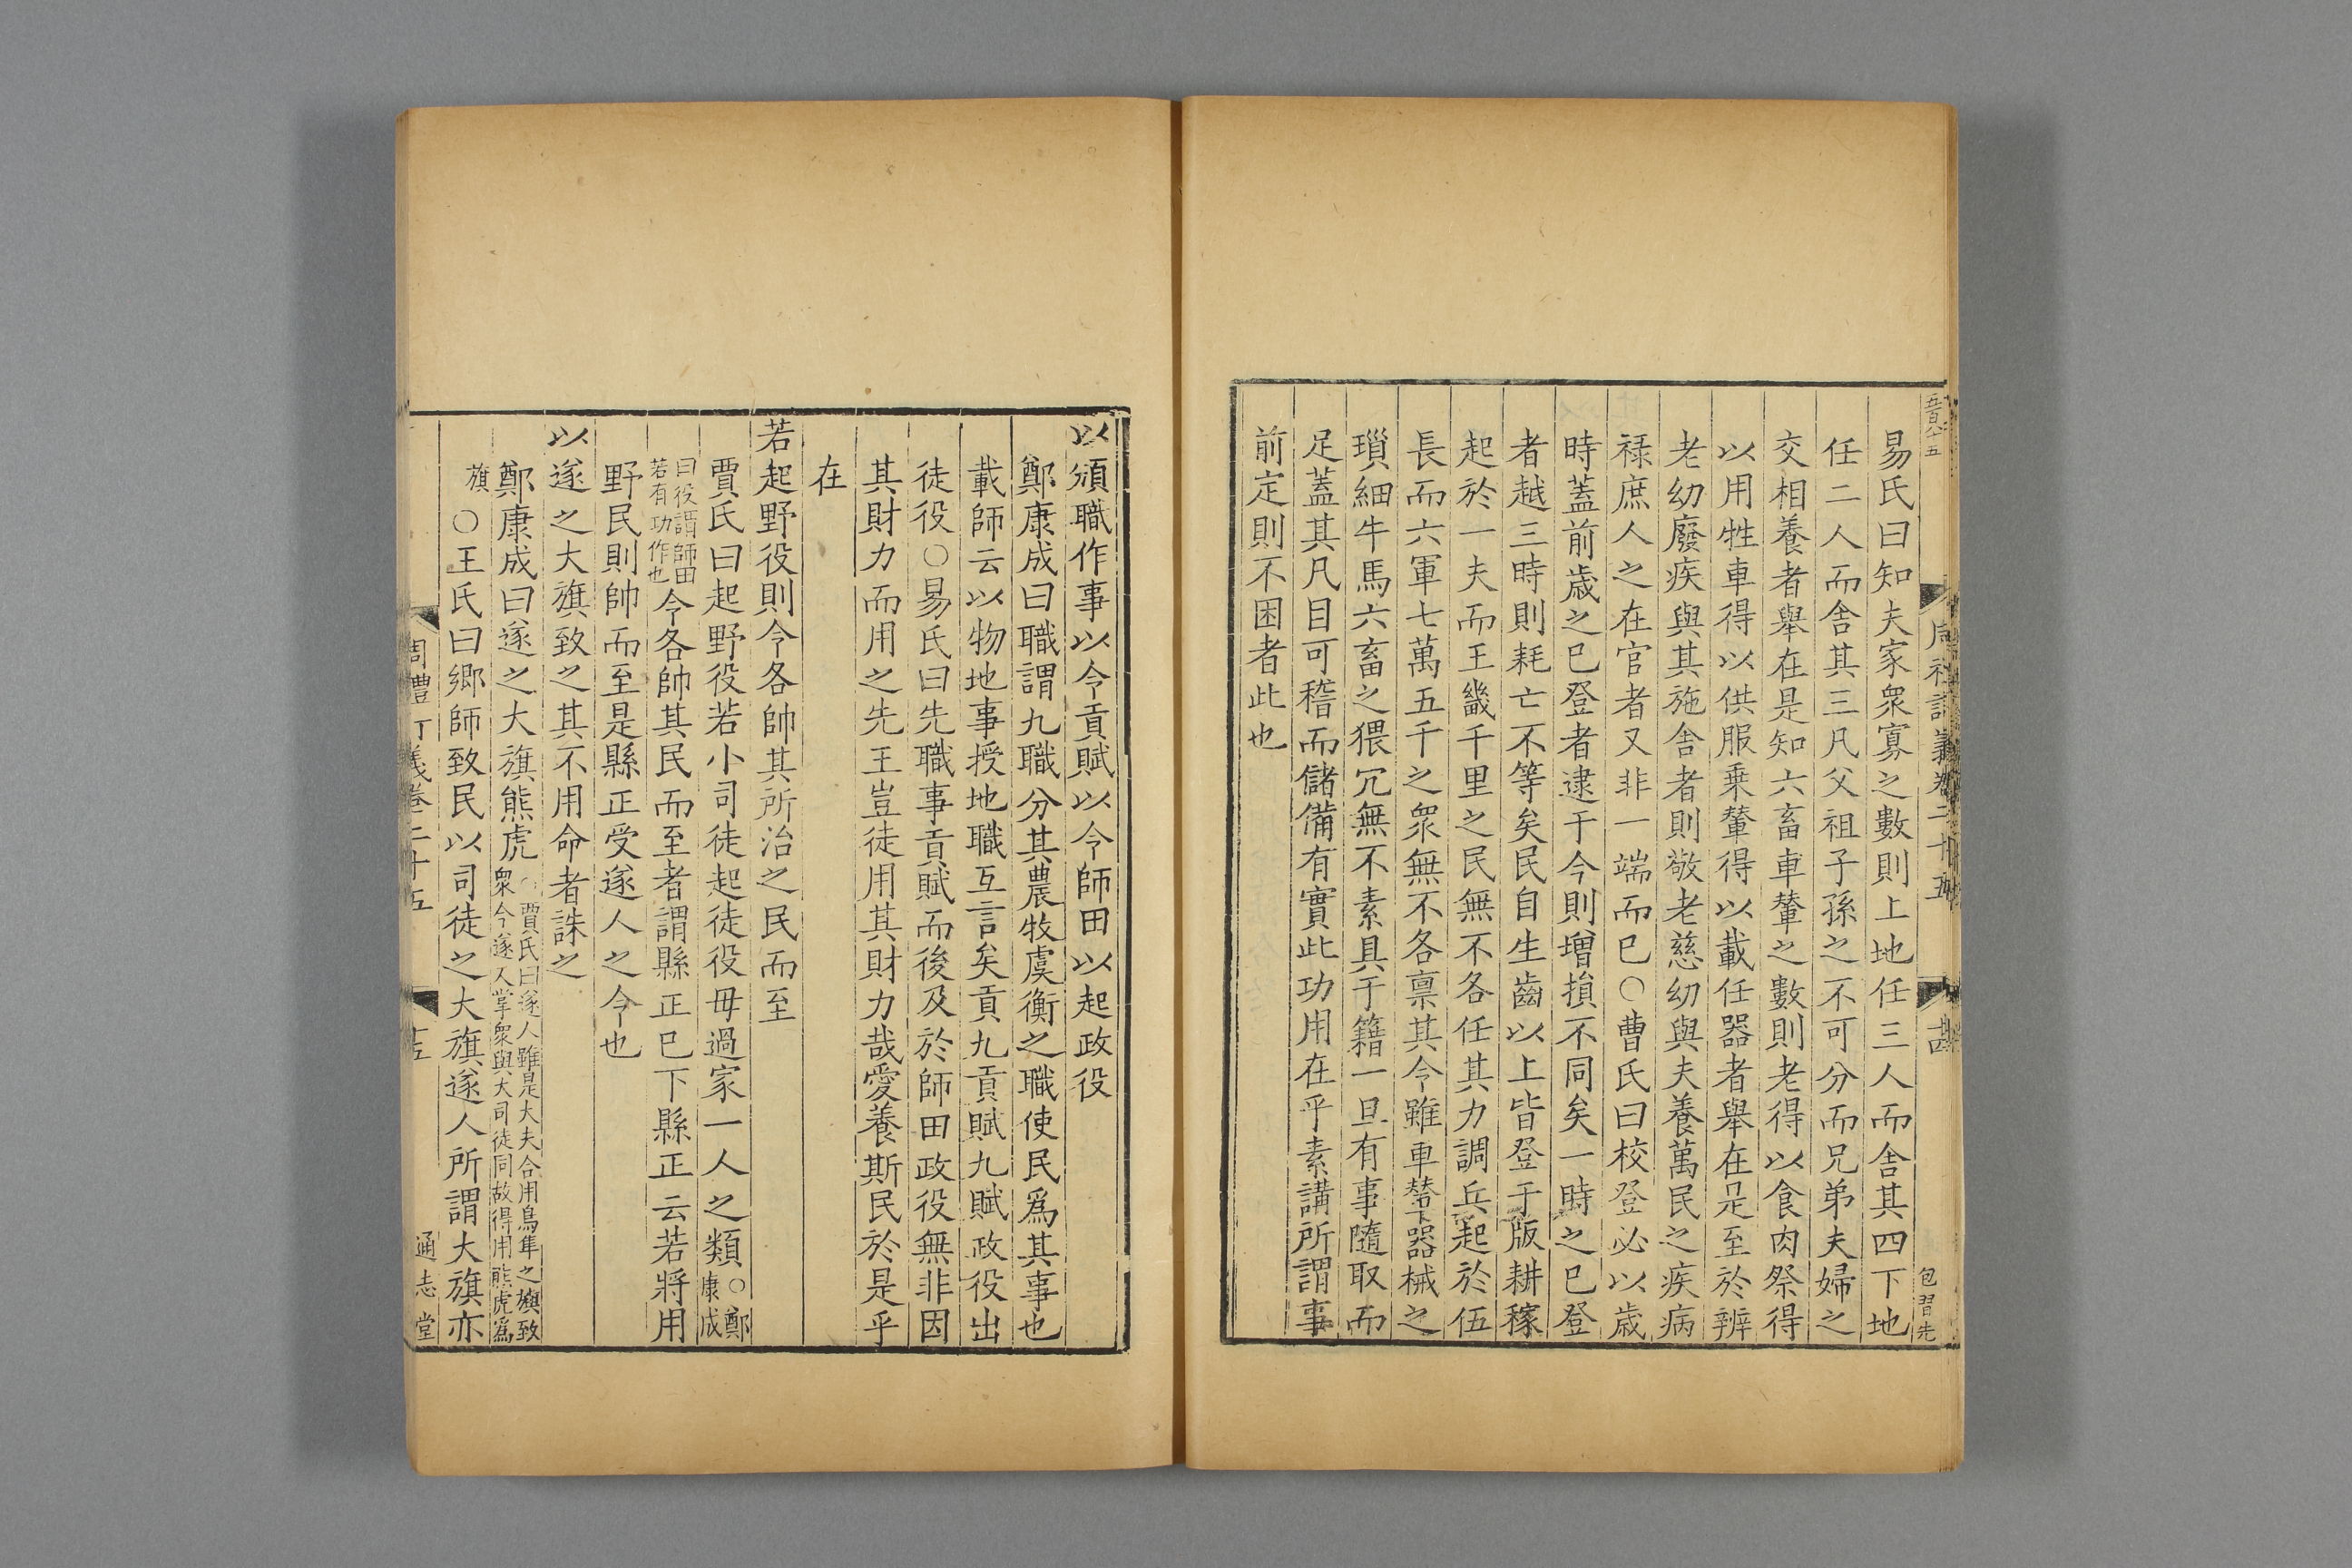 易氏曰知夫家衆寡之數則上地任三人而舍其四下地
任二人而舍其三凡父祖子孫之不可分而兄弟夫婦之
交相養者舉在是知六畜車輦之數則老得以食肉祭得
以用牲車得以供服乗輦得以載任器者舉在是至於辨
老幼廢疾與其施舍者則敬老慈幼與夫養萬民之疾病
禄庶人之在官者又非一端而巳○曹氏曰校登必以歳
時蓋前歳之巳登者逮于今則增損不同矣一時之巳登
者越三時則耗亡不等矣民自生齒以上皆登于版耕稼
起於一夫而王畿千里之民無不各任其力調兵起於伍
長而六軍七萬五千之衆無不各禀其令雖車輦器械之
瑣細牛馬六畜之猥冗無不素具于籍一旦有事隨取而
足蓋其凡目可稽而儲備有實此功用在乎素講所謂事
前定則不困者此也
以頒職作事以令貢賦以令師田以起政役
鄭康成曰職謂九職分其農牧虞衡之職使民爲其事也
載師云以物地事授地職互言矣貢九貢賦九賦政役出
徒役○易氏曰先職事貢賦而後及於師田政役無非因
其財力而用之先王豈徒用其財力哉愛養斯民於是乎
在
若起野役則令各帥其所治之民而至
賈氏曰起野役若小司徒起徒役毋過家一人之類○鄭康成
曰役謂師田若有功作也令各帥其民而至者謂縣正巳下縣正云若將用
野民則帥而至是縣正受遂人之令也
以遂之大旗致之其不用命者誅之
鄭康成曰遂之大旗熊虎○賈氏曰遂人雖是大夫合用鳥隼之旟致衆今遂人掌衆與大司徒同故得用熊虎爲
旗○王氏曰鄉師致民以司徒之大旗遂人所謂大旗亦
周禮訂義卷二十五
十五
通志堂